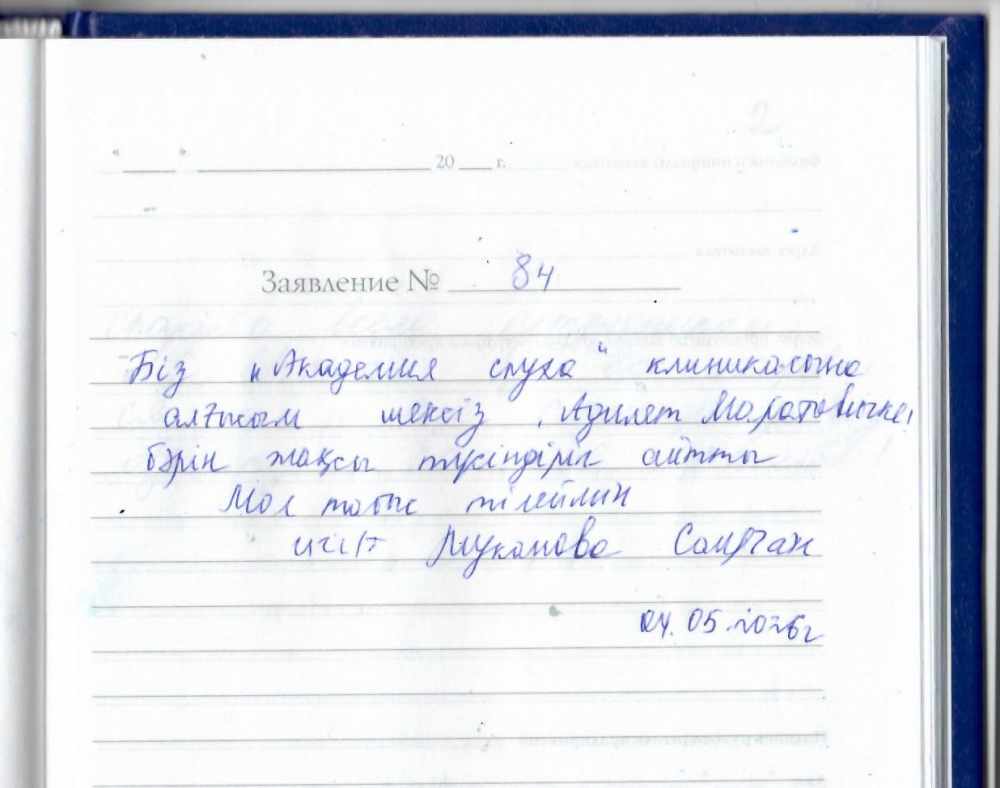 « ____ » ____________ 20 ___ г.
Заявление № 84
Біз "Академия слуха" клиникасына
алғысым шексіз. Адилет Маратовичке,
бәрін жақсы түсіндіріп айтты
Мол табыс тілеймін
Муканова
04.05.2026г